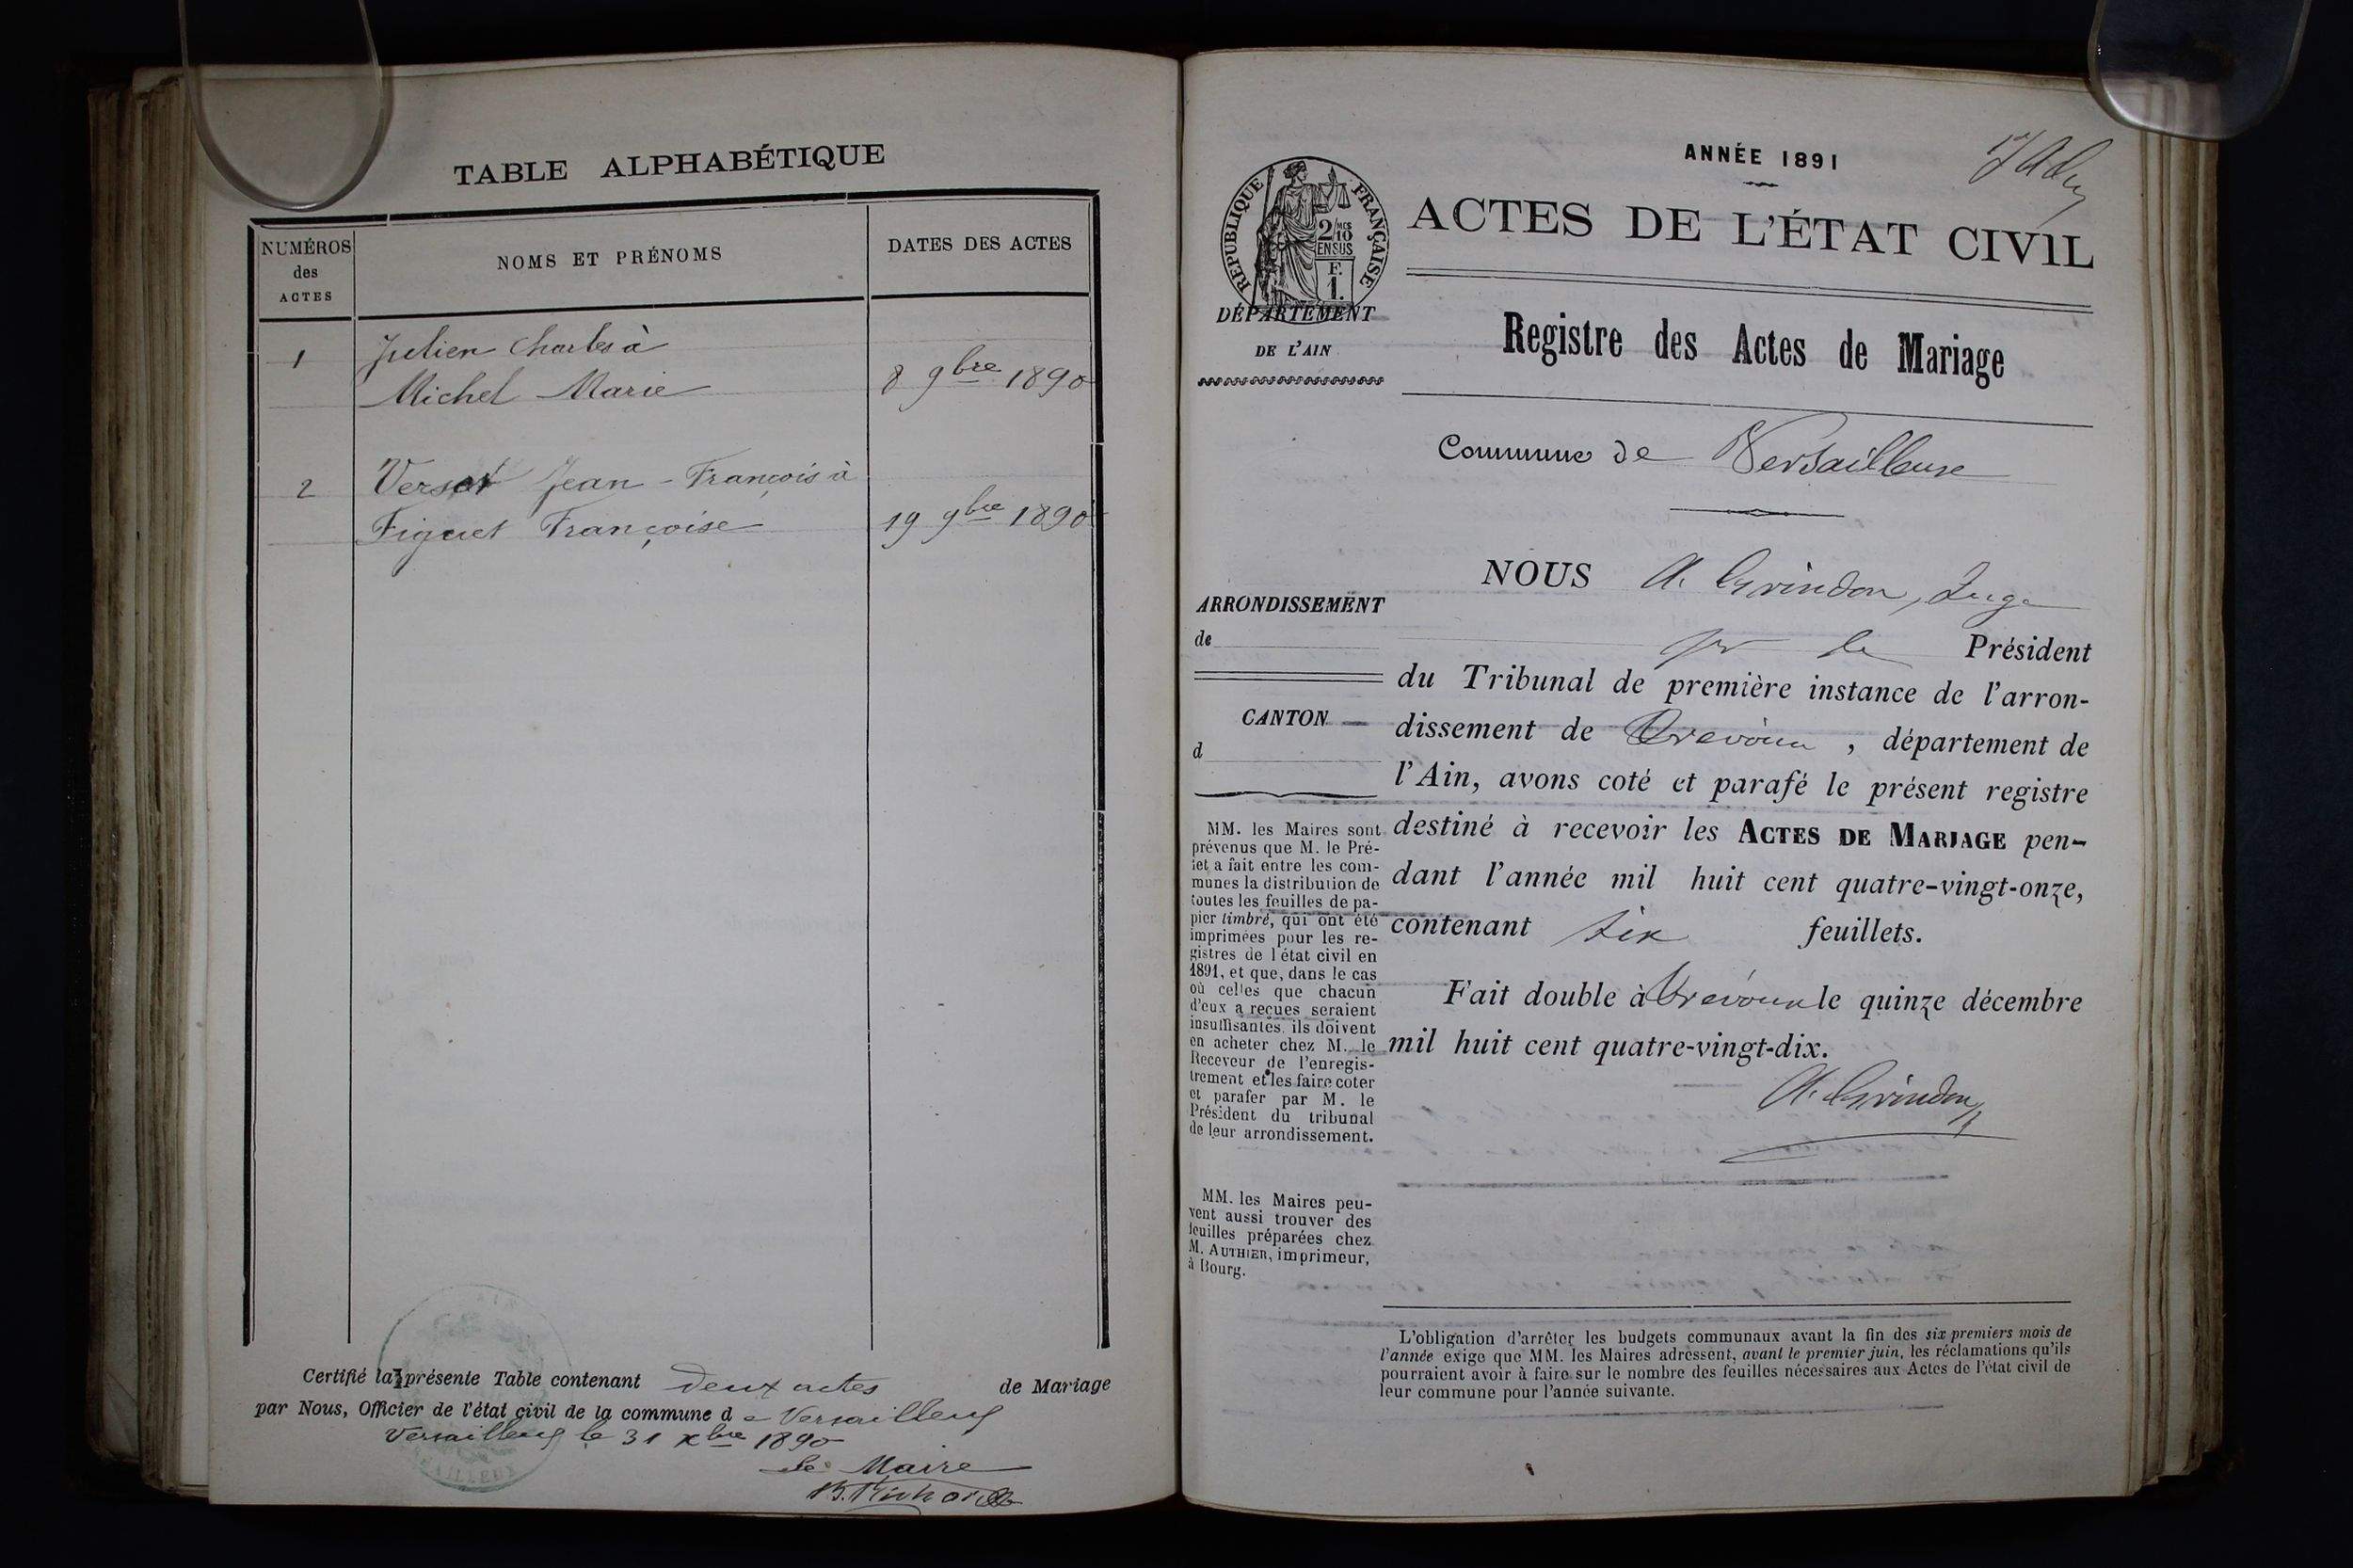 TABLE ALPHABÉTIQUE
NUMÉROS
des
ACTES
NOMS ET PRÉNOMS
DATES DES ACTES
1
Julien Charles à
Michel Marie
8 9bre 1890
2
Versot Jean-François à
Figuet Françoise
19 9bre 1890
Certifié la présente Table contenant deux actes de Mariage
par Nous, Officier de l'état civil de la commune de Versailleux
Versailleux le 31 xbre 1890
Le Maire
ANNÉE 1891
ACTES DE L'ÉTAT CIVIL
RÉPUBLIQUE FRANÇAISE
2/10
EN SUS
F.
1.
DÉPARTEMENT
DE L'AIN
Registre des Actes de Mariage
Commune de Versailleux
ARRONDISSEMENT
de
CANTON
d
MM. les Maires sont
prévenus que M. le Pré-
fet a fait entre les com-
munes la distribution de
toutes les feuilles de pa-
pier timbré, qui ont été
imprimées pour les re-
gistres de l'état civil en
1891, et que, dans le cas
où celles que chacun
d'eux a reçues seraient
insuffisantes, ils doivent
en acheter chez M. le
Receveur de l'enregis-
trement et les faire coter
et parafer par M. le
Président du tribunal
de leur arrondissement.
MM. les Maires peu-
vent aussi trouver des
feuilles préparées chez
M. AUTHIER, imprimeur,
à Bourg.
NOUS A. Grindon, Juge
pr le Président
du Tribunal de première instance de l'arron-
dissement de Trévoux, département de
l'Ain, avons coté et parafé le présent registre
destiné à recevoir les ACTES DE MARIAGE pen-
dant l'année mil huit cent quatre-vingt-onze,
contenant six feuillets.
Fait double à Trévoux le quinze décembre
mil huit cent quatre-vingt-dix.
A. Grindon
L'obligation d'arrêter les budgets communaux avant la fin des six premiers mois de
l'année exige que MM. les Maires adressent, avant le premier juin, les réclamations qu'ils
pourraient avoir à faire sur le nombre des feuilles nécessaires aux Actes de l'état civil de
leur commune pour l'année suivante.